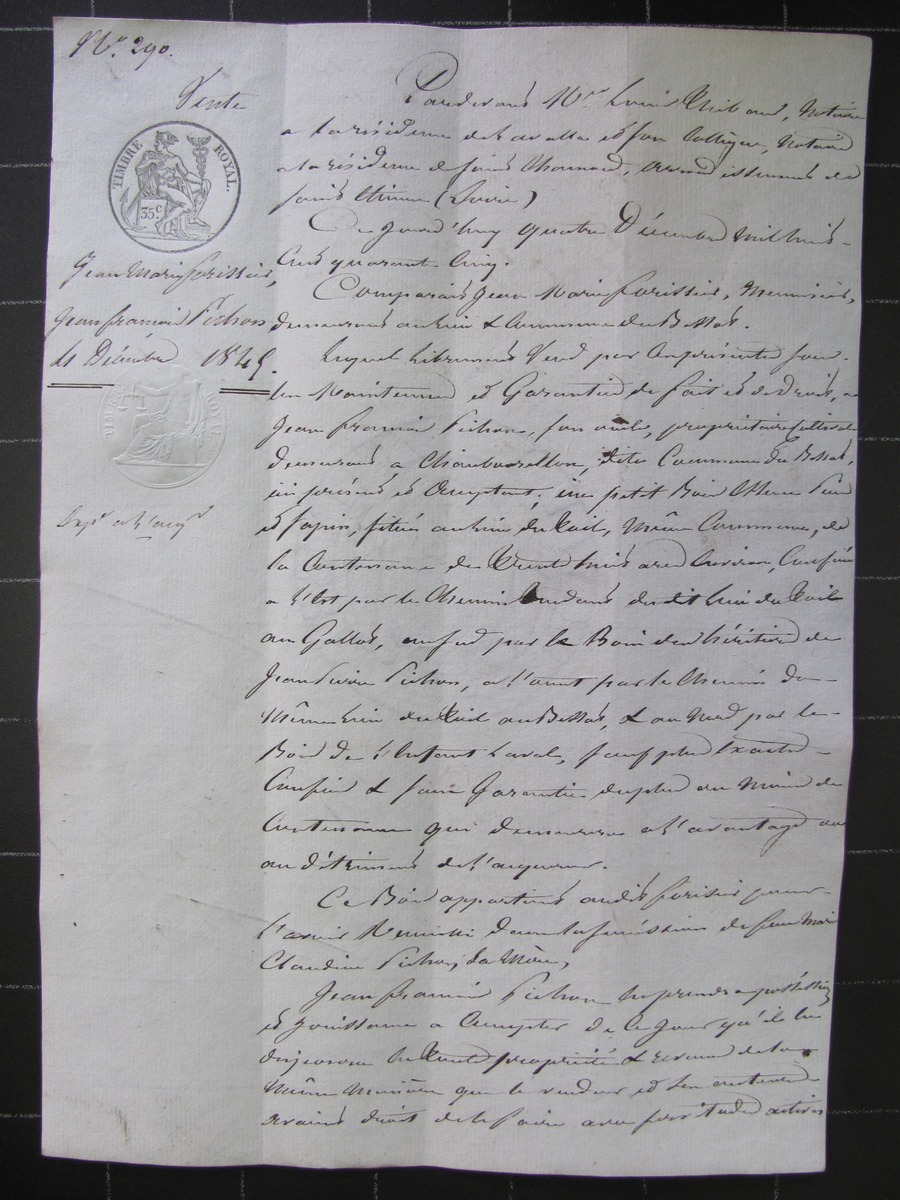 N.o 290.
Vente
TIMBRE ROYAL.
35 c
Jean Marie forissier,
Jean francois Pichon
4 Décembre 1845.
Exp.n à l'acq.r
Pardevant M.re Louis Thibaud, Notaire
a la résidence de Lavalla et son Collègue, Notaire
a la résidence de saint Chamond, arrondissement de
saint Etienne (Loire)
Ce jourd'huy quatre Décembre mil huit
Cent quarante Cinq.
Comparait Jean Marie forissier, Menuisier,
demeurant au lieu & Commune du Bessat.
Lequel librement Vend par Ces présentes sous
bon Maintenue et Garantie de fait et de droit, a
Jean francois Pichon, son oncle, propriétaire Cultivateur
demeurant a dite Commune du Bessat,
ici présent et acceptant. un petit Bois Essence Pin
et sapin, situé au lieu du Toil, même Commune, de
la Contenance de Trente huit ares Environ, Confiné
a l'Est par le Chemin Tendant du dit lieu du Toil
au Gallot, au sud par le Bois des héritiers de
Jean Pierre Pichon, a l'ouest par le Chemin du
même lieu du Toil au Bessat, & au Nord par le
Bois de l'Enfant Laval, sauf plus Exacts
Confins & sans Garantie du plus au moins de
Contenance qui demeurera a l'avantage ou
au détriment de l'acquereur.
Ce Bois appartient audit forissier pour
l'avoir Recueilli dans la succession de feue Marie
Claudine Pichon, sa Mère,
Jean francois Pichon En prendra possession
et Jouissance a Compter de Ce jour qu'il En
disposera En Toute propriété & de la
même manière que le vendeur et ses auteurs
avaient droit de le faire avec servitudes actives